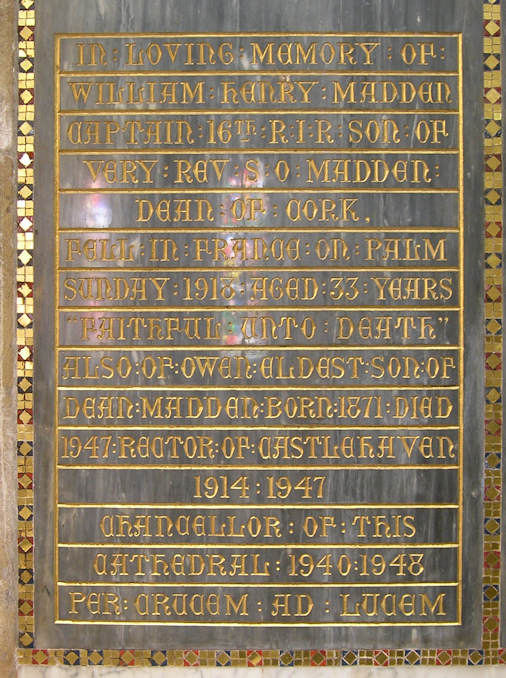 IN : LOVING : MEMORY : OF :
WILLIAM : HENRY : MADDEN
CAPTAIN : 16TH : R.I.R : SON : OF
VERY : REV : S : O : MADDEN :
DEAN : OF : CORK,
FELL : IN : FRANCE : ON : PALM
SUNDAY : 1918 : AGED : 33 : YEARS
"FAITHFUL : UNTO : DEATH"
ALSO : OF : OWEN : ELDEST : SON : OF
DEAN : MADDEN : BORN : 1871 : DIED
1947 : RECTOR : OF : CASTLEHAVEN
1914 : 1947
CHANCELLOR : OF : THIS
CATHEDRAL : 1940 : 1948
PER : CRUCEM : AD : LUCEM